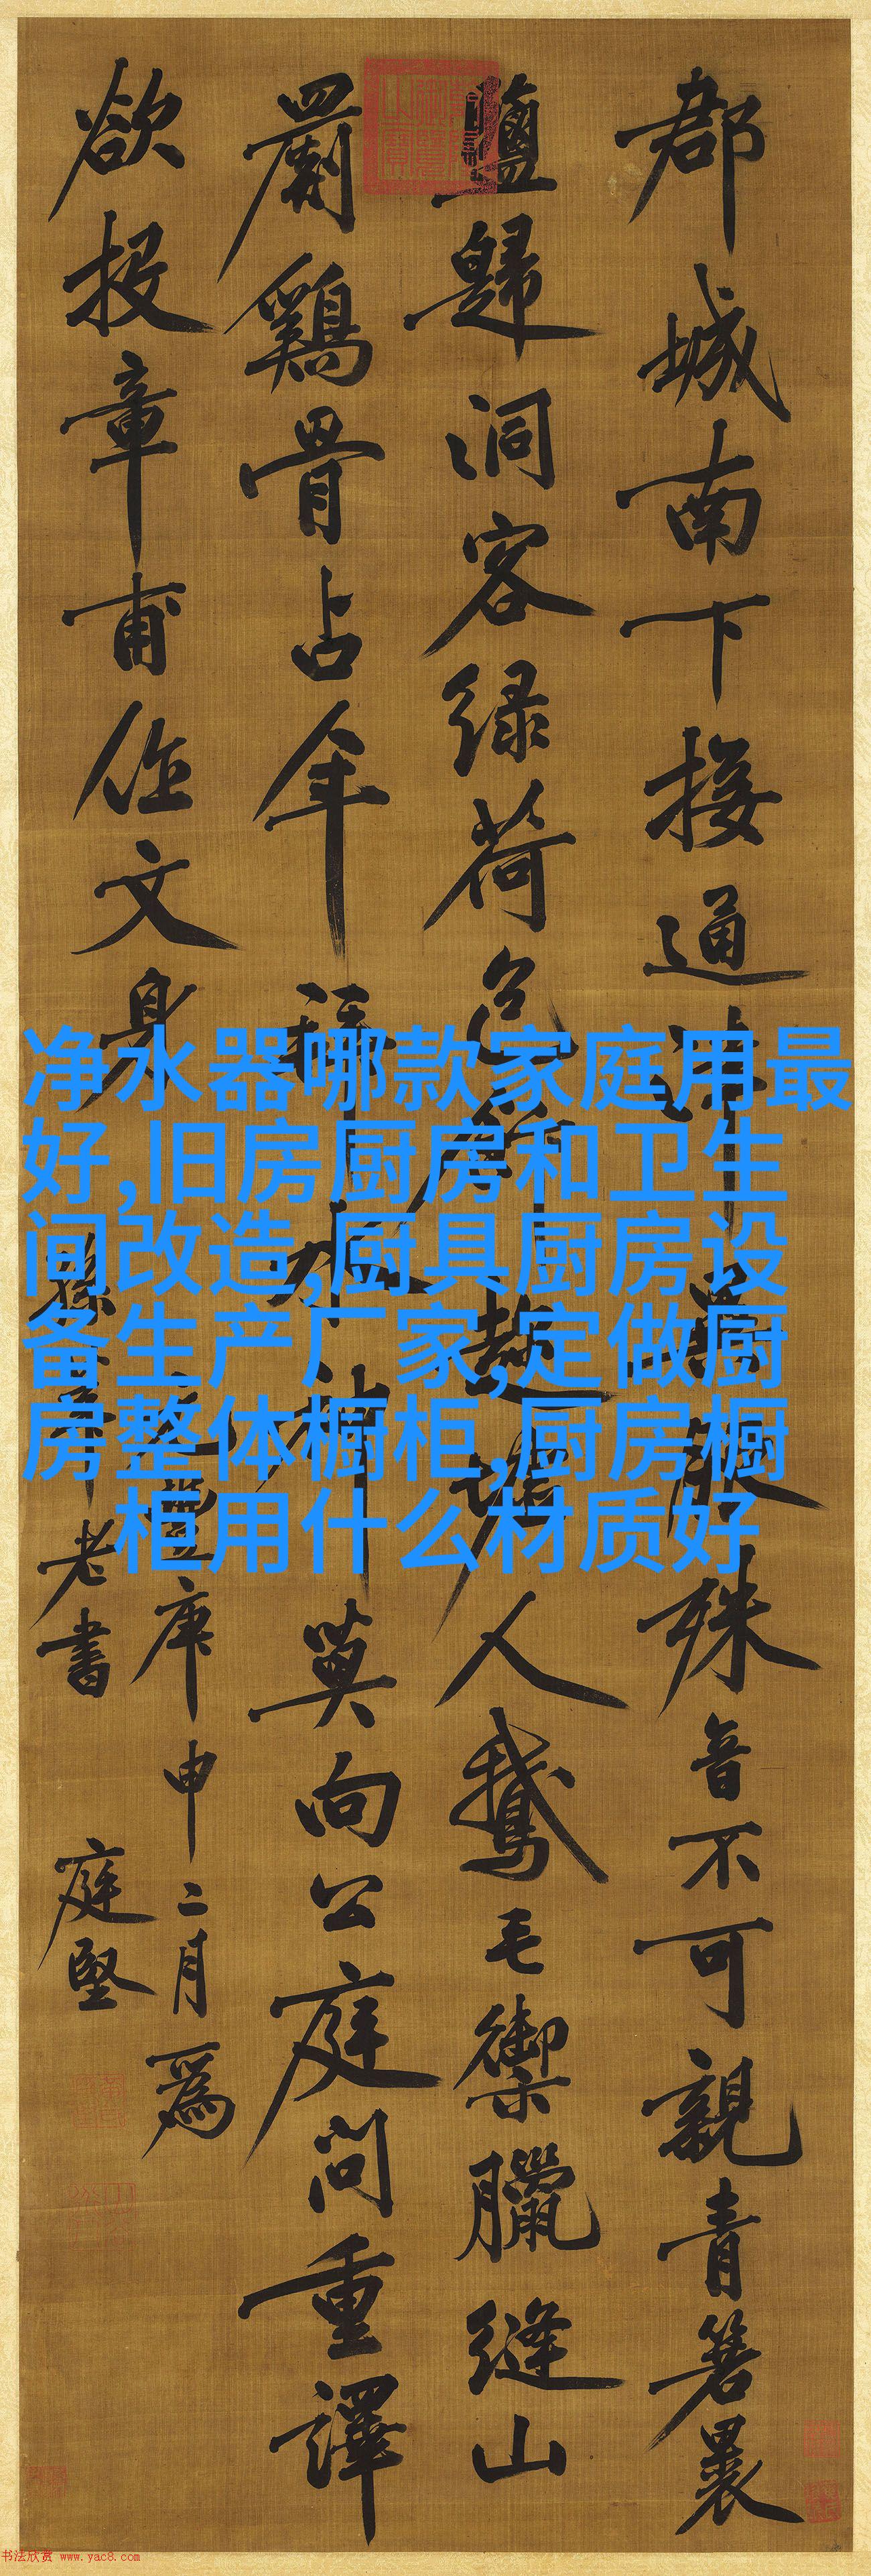 郡城南下接通津異服殊音不可親青箬裹
鹽歸洞客緑荷包飯趁墟人鵝毛禦臘縫山
罽鷄骨占年拜水神莫向公庭問重譯
欲投章甫作文身
豐庚申二月爲
莘老書 庭堅
净水器哪款家庭用最
好,旧房厨房和卫生
间改造,厨具厨房设
备生产厂家,定做厨
房整体橱柜,厨房橱
柜用什么材质好
书法欣赏 www.yac8.com